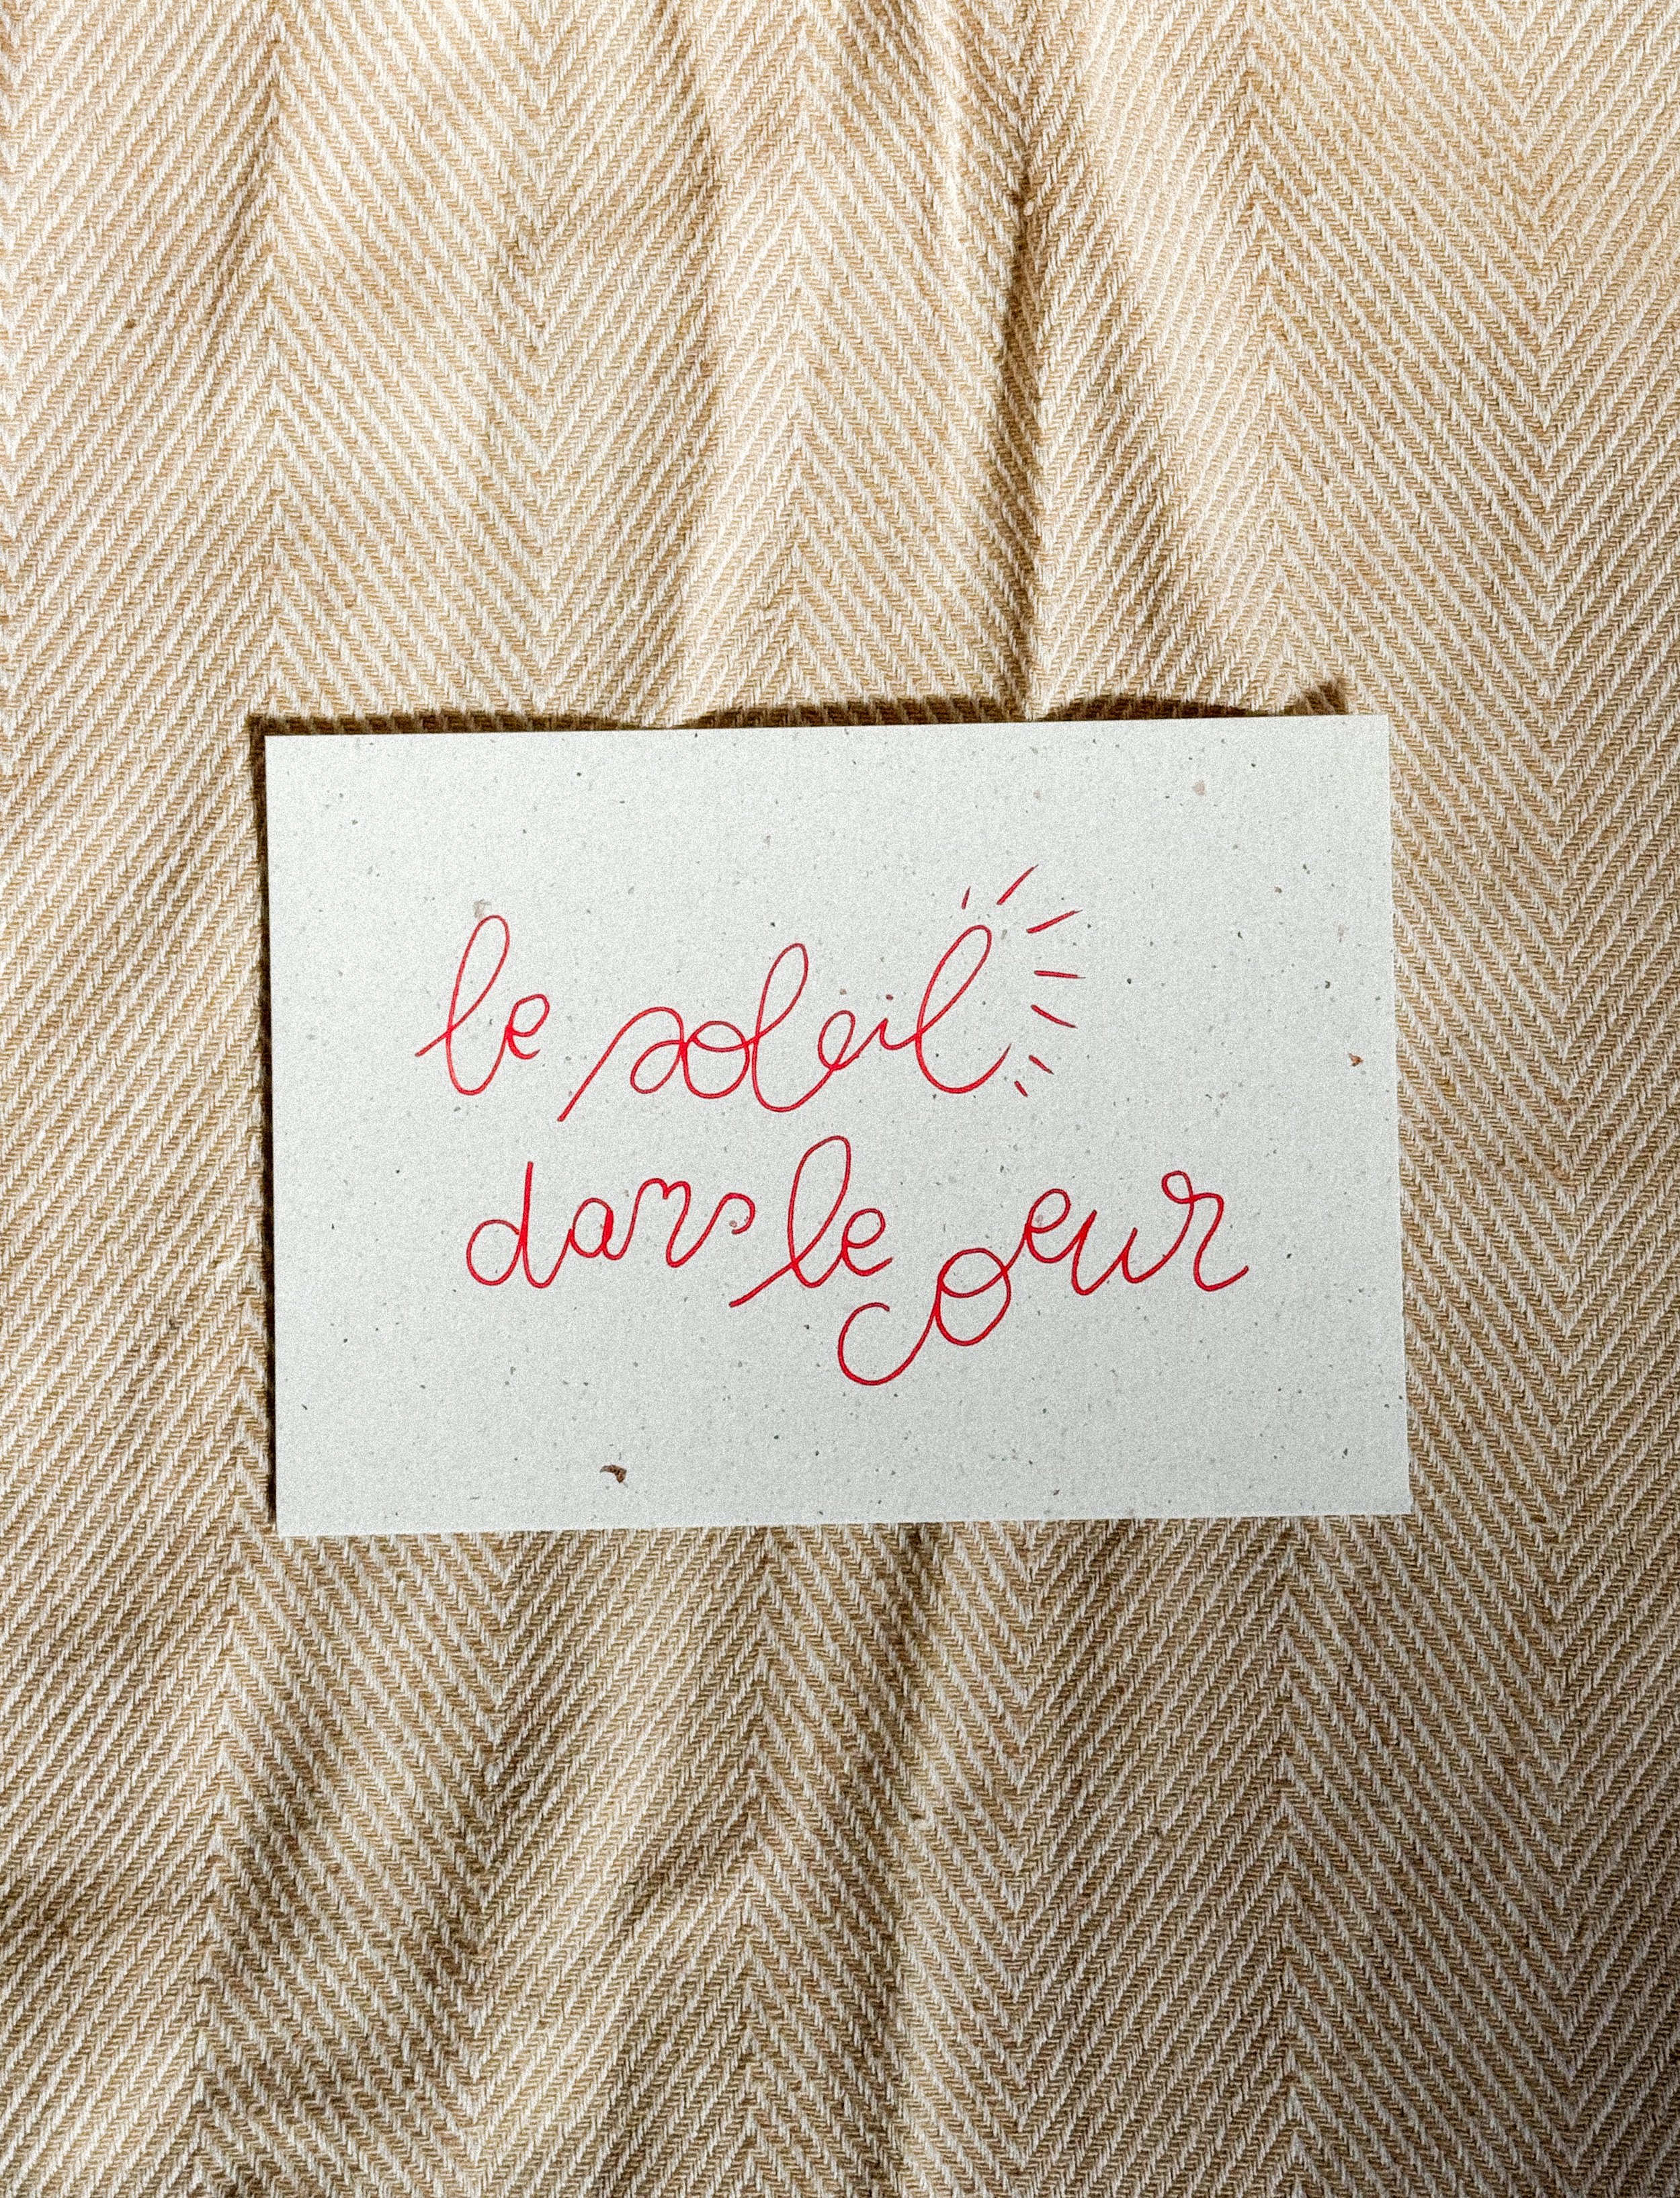 le soleil
dans le coeur